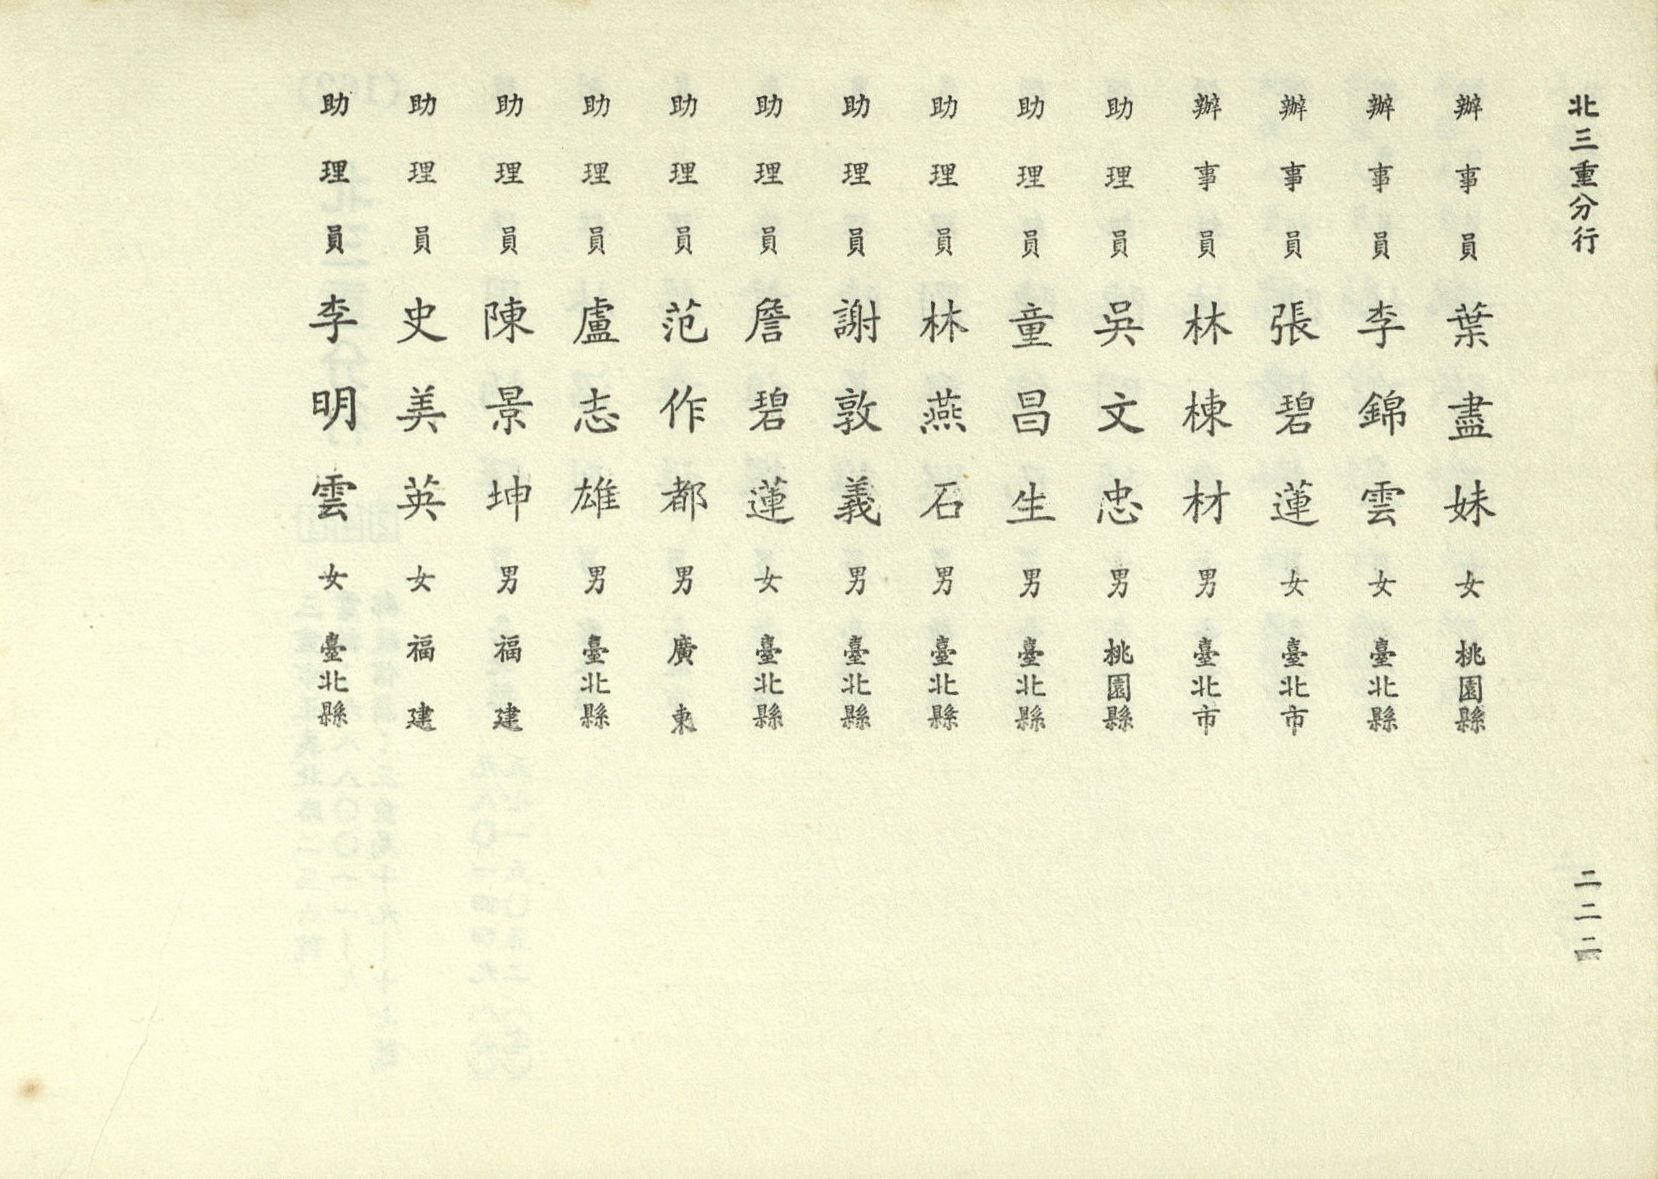 北三重分行
辦事員 葉盡妹 女 桃園縣
辦事員 李錦雲 女 臺北縣
辦事員 張碧蓮 女 臺北市
辦事員 林棟材 男 臺北市
助理員 吳文忠 男 桃園縣
助理員 童昌生 男 臺北縣
助理員 林燕石 男 臺北縣
助理員 謝敦義 男 臺北縣
助理員 詹碧蓮 女 臺北縣
助理員 范作都 男 廣東
助理員 盧志雄 男 臺北縣
助理員 陳景坤 男 福建
助理員 史美英 女 福建
助理員 李明雲 女 臺北縣
二二二